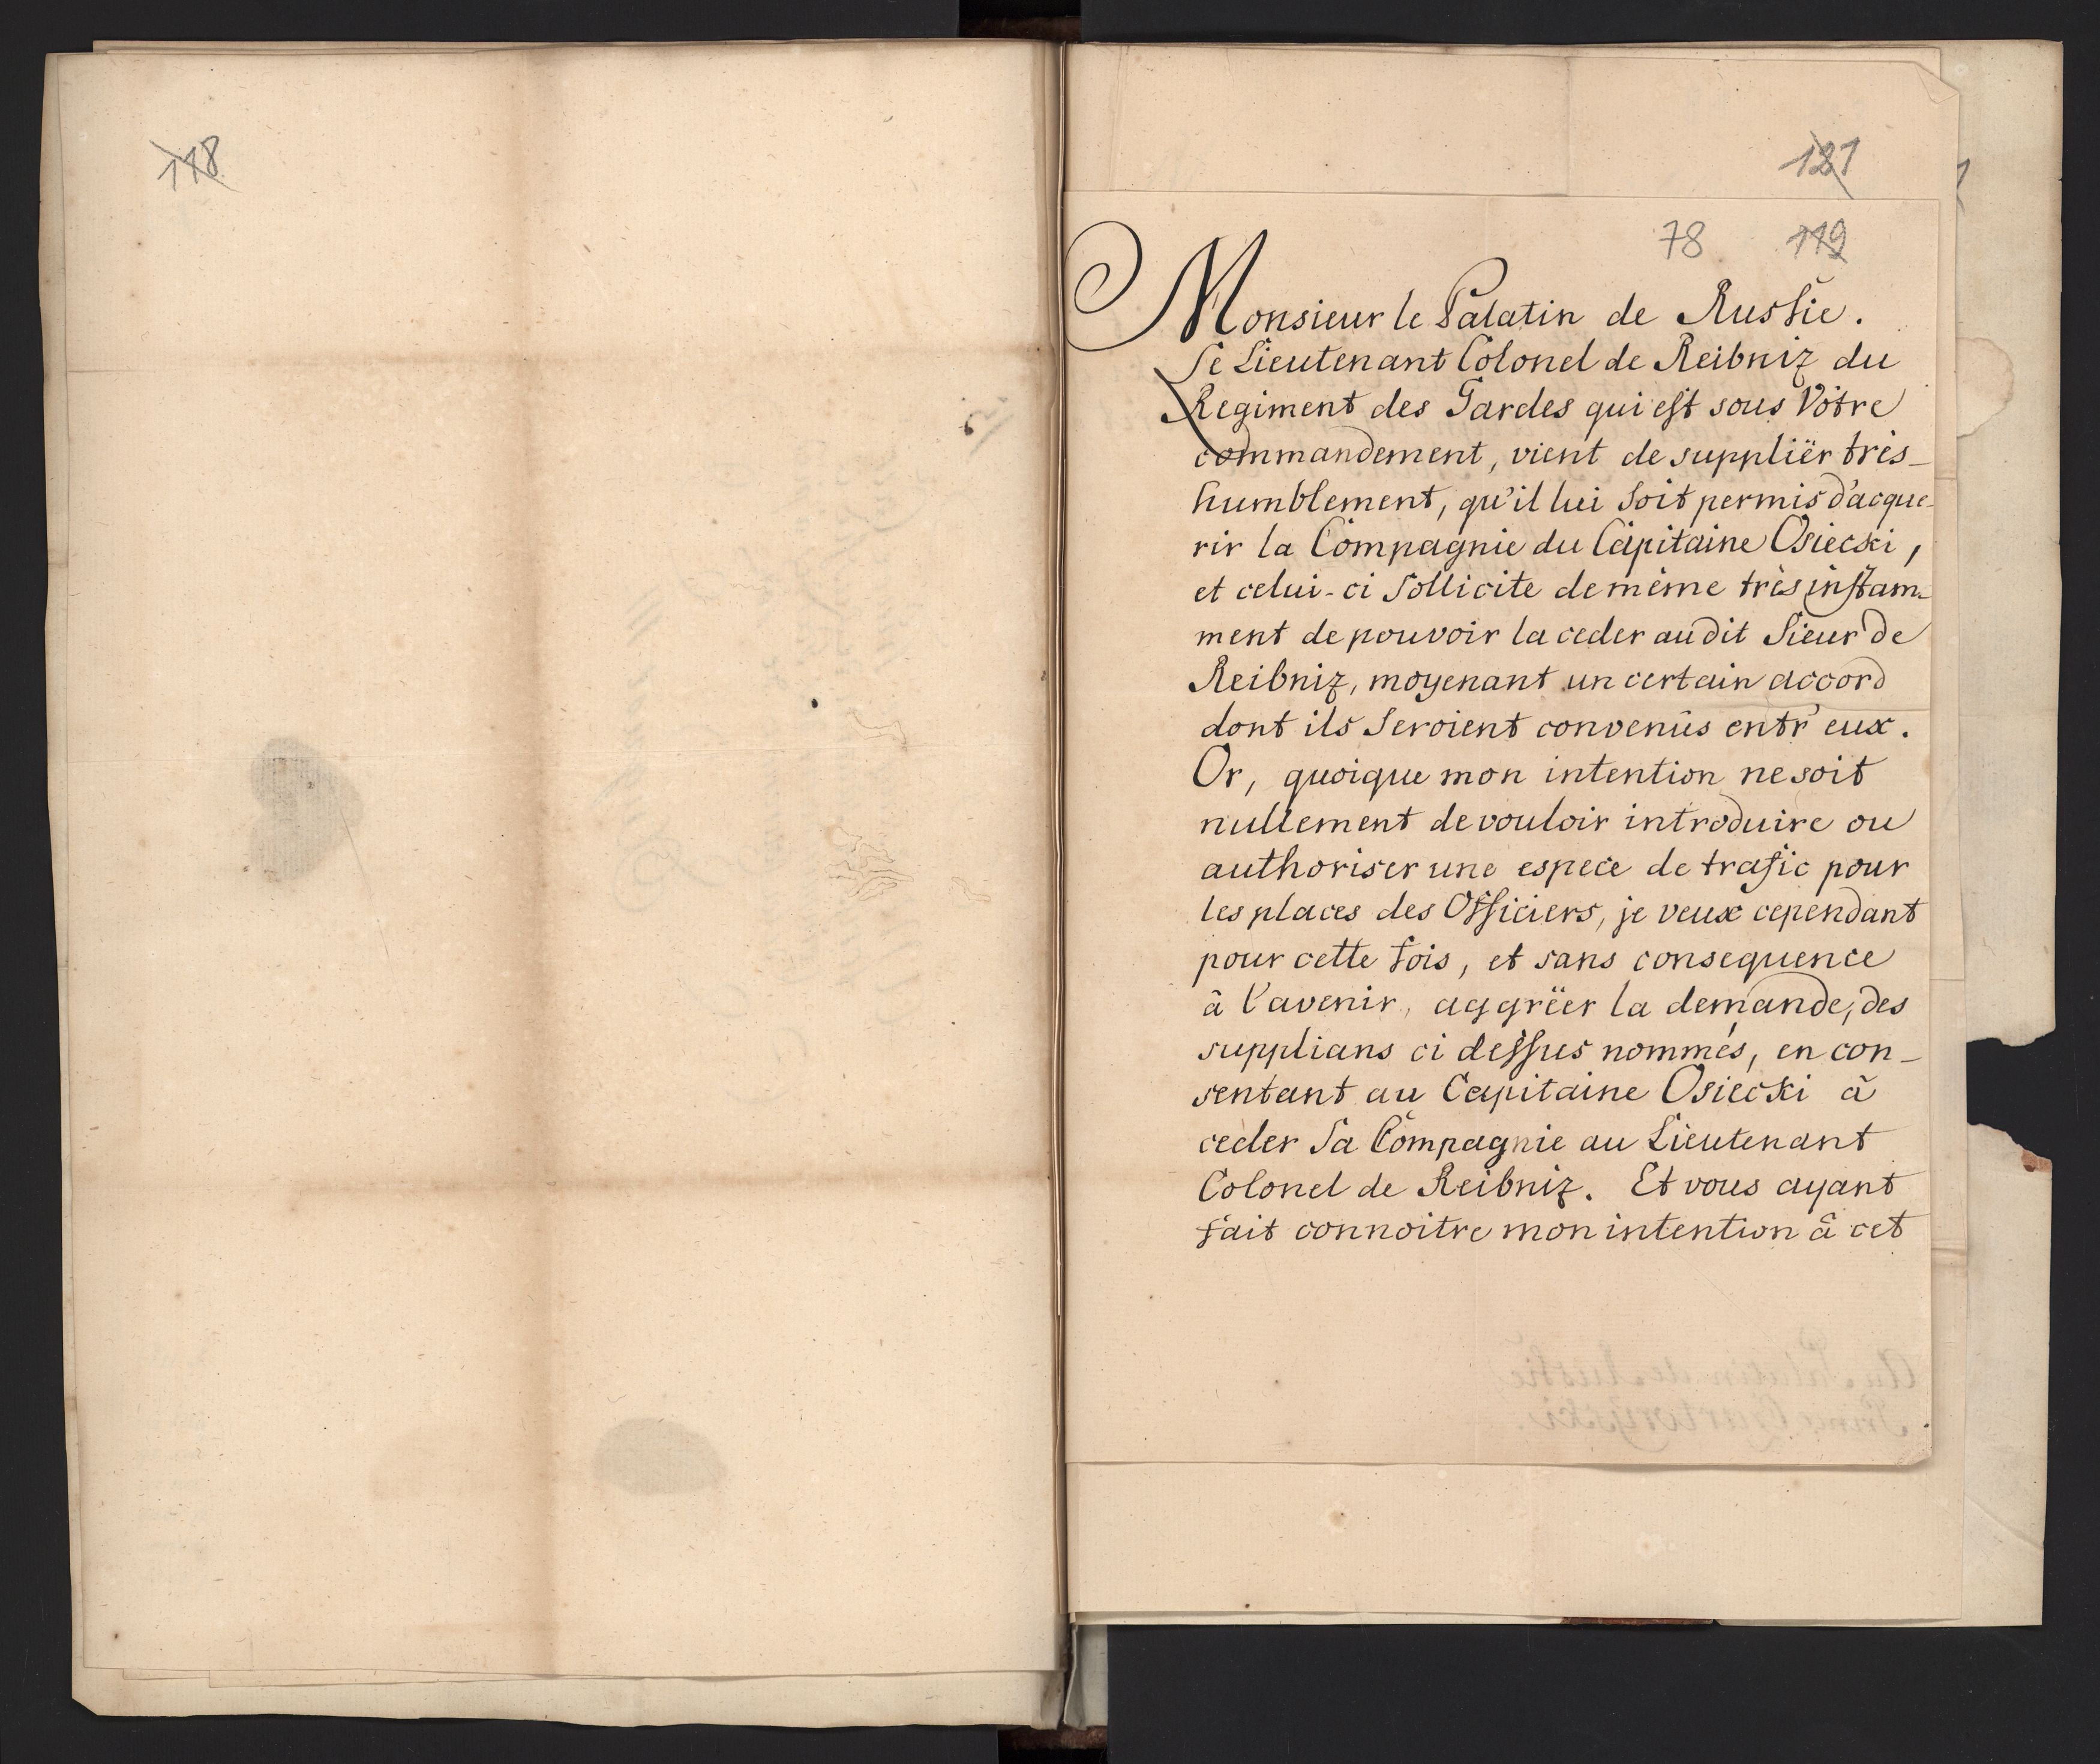 118
121
78 119
Monsieur le Palatin de Russie.
Le Lieutenant Colonel de Reibniz du
Regiment des Gardes qui est sous Vôtre
commandement, vient de suppliër très-
humblement, qu'il lui soit permis d'acque-
rir la Compagnie du Capitaine Osiecki,
et celui-ci sollicite de même très instam-
ment de pouvoir la ceder audit Sieur de
Reibniz, moyenant un certain accord
dont ils seroient convenûs entr'eux.
Or, quoique mon intention ne soit
nullement de vouloir introduire ou
authoriser une espece de trafic pour
les places des Officiers, je veux cependant
pour cette fois, et sans consequence
à l'avenir, aggrëer la demande, des
supplians ci dessus nommés, en con-
sentant au Capitaine Osiecki à
ceder sa Compagnie au Lieutenant
Colonel de Reibniz. Et vous ayant
fait connoitre mon intention à cet
Au Palatin de Russie
Prince Czartoryski.